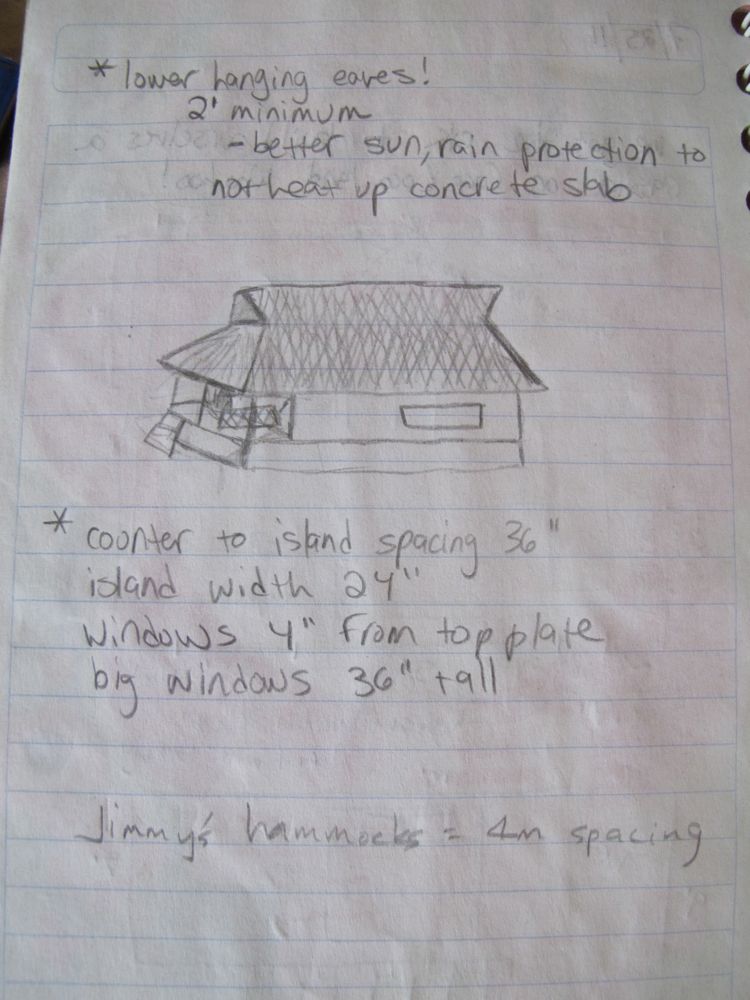 * lower hanging eaves!
2' minimum
- better sun, rain protection to
not heat up concrete slab
* counter to island spacing 36"
island width 24"
windows 4" from top plate
big windows 36" tall
Jimmy's hammocks = 4m spacing